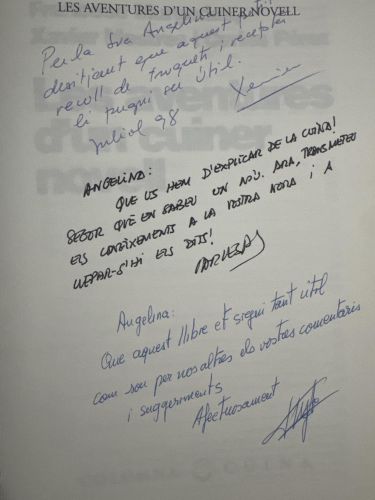 LES AVENTURES D'UN CUINER NOVELL
Per la Sra Angelina
desitjant que aquest petit
recull de truquets i receptes
li pugui ser útil.
Juliol 98 Xavier
ANGELINA:
QUE US HEM D'EXPLICAR DE LA CUINA!
SEGUR QUE EN SABEU UN NIU. ARA, TRANSMETEU
ELS CONEIXEMENTS A LA VOSTRA NORA I A
LLEPAR-S'HI ELS DITS!
Angelina:
Que aquest llibre et sigui tant útil
com son per nosaltres els vostres comentaris
i suggeriments
Afectuosament